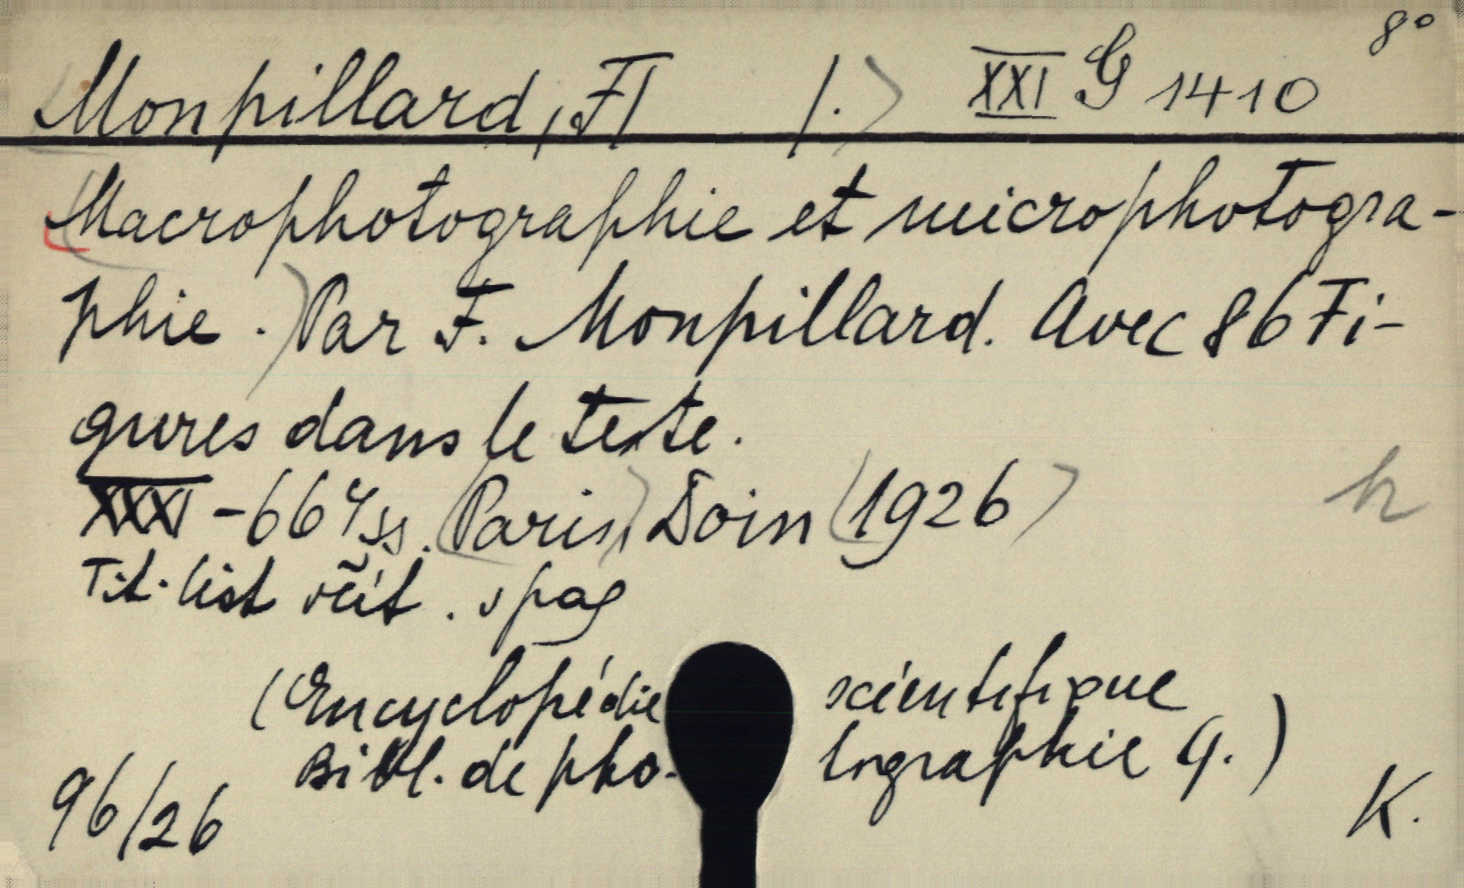 8°
Monpillard, F 1.) XXI G 1410
Macrophotographie et microphotogra-
phie.) Par F. Monpillard. Avec 86 Fi-
gures dans le texte.
XXXI - 667 ss. (Paris,) Doin (1926)
h
Tit. list včít. v pag
(Encyclopédie scientifique
Bibl. de pho- tographie 9.)
96/26 K.